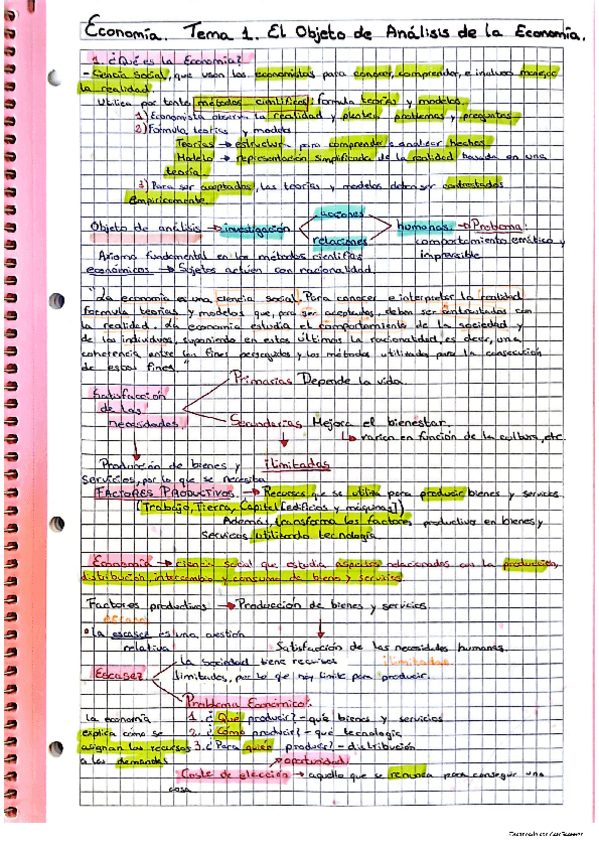 Economía. Tema 1. El Objeto de Análisis de la Economía.
1. ¿Qué es la Economía?
- Ciencia Social, que usan los economistas para conocer, comprender, e incluso manejar
la realidad.
Utiliza por tanto métodos científicos: formula teorías y modelos.
1) Economista observa la realidad y plantea problemas y preguntas
2) Formula teorías y modelos
Teorías → estructura para comprender e analizar hechos
Modelo → representación simplificada de la realidad basada en una
teoría
3) Para ser aceptados, las teorías y modelos deben ser contrastados
empíricamente.
acciones
Objeto de análisis → investigación humanas. → Problema:
relaciones comportamiento errático y
Axioma fundamental en los métodos científicos imprevisible
económicos → Sujetos actúen con racionalidad.
"La economía es una ciencia social. Para conocer e interpretar la realidad
formula teorías y modelos que, para ser aceptados, deben ser contrastados con
la realidad. La economía estudia el comportamiento de la sociedad y
de los individuos, suponiendo en estos últimos la racionalidad, es decir, una
coherencia entre los fines perseguidos y los métodos utilizados para la consecución
de esos fines."
Primarias Depende la vida.
Satisfacción
de las
necesidades. Secundarias Mejora el bienestar.
↳ varían en función de la cultura, etc.
Producción de bienes y ilimitadas
servicios, por lo que se necesita
FACTORES PRODUCTIVOS. → Recursos que se utiliza para producir bienes y servicios
(Trabajo, Tierra, Capital [edificios y máquinas])
Además, transforma los factores productivos en bienes y
servicios utilizando tecnología
Economía → ciencia social que estudia aspectos relacionados con la producción,
distribución, intercambio y consumo de bienes y servicios
Factores productivos → Producción de bienes y servicios
escasos
• la escasez es una cuestión
relativa Satisfacción de las necesidades humanas.
la sociedad tiene recursos ilimitadas
Escasez limitados, por lo que hay límite para producir.
Problema Económico:
La economía 1. ¿Qué producir? - qué bienes y servicios
explica cómo se 2. ¿Cómo producir? - qué tecnología
asignan los recursos 3. ¿Para quién producir? - distribución
a las demandas oportunidad
Coste de elección → aquello que se renuncia para conseguir una
cosa